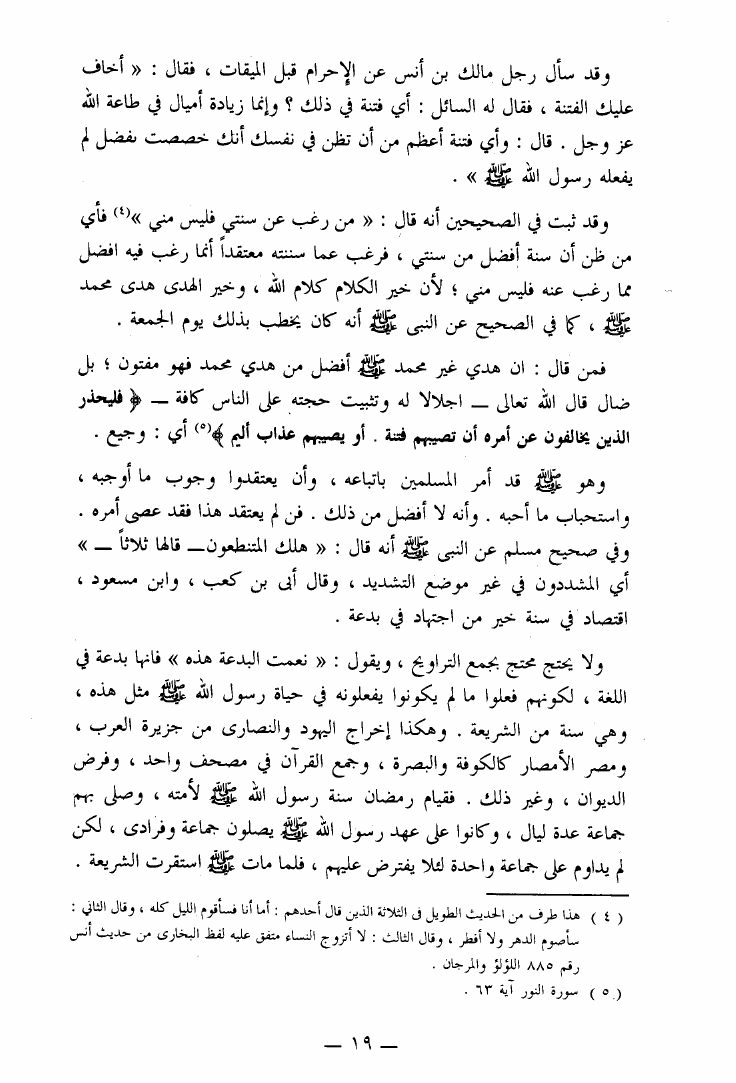 وقد سأل رجل مالك بن أنس عن الإحرام قبل الميقات ، فقال : « أخاف
عليك الفتنة ، فقال له السائل : أي فتنة في ذلك ؟ وإنما زيادة أميال في طاعة الله
عز وجل . قال : وأي فتنة أعظم من أن تظن في نفسك أنك خصصت بفضل لم
يفعله رسول الله ﷺ » .
وقد ثبت في الصحيحين أنه قال : « من رغب عن سنتي فليس مني »(٤) فأي
من ظن أن سنة أفضل من سنتي ، فرغب عما سننته معتقداً أنما رغب فيه افضل
مما رغب عنه فليس مني ؛ لأن خير الكلام كلام الله ، وخير الهدى هدى محمد
ﷺ ، كما في الصحيح عن النبى ﷺ أنه كان يخطب بذلك يوم الجمعة .
فمن قال : ان هدي غير محمد ﷺ أفضل من هدي محمد فهو مفتون ؛ بل
ضال قال الله تعالى ــ اجلالا له وتثبيت حجته على الناس كافة ــ ﴿ فليحذر
الذين يخالفون عن أمره أن تصيبهم فتنة . أو يصيبهم عذاب أليم ﴾(٥) أي : وجيع .
وهو ﷺ قد أمر المسلمين باتباعه ، وأن يعتقدوا وجوب ما أوجبه ،
واستحباب ما أحبه . وأنه لا أفضل من ذلك . فن لم يعتقد هذا فقد عصى أمره .
وفي صحيح مسلم عن النبى ﷺ أنه قال : « هلك المتنطعون ــ قالها ثلاثاً ــ »
أي المشددون في غير موضع التشديد ، وقال أبى بن كعب ، وابن مسعود ،
اقتصاد في سنة خير من اجتهاد في بدعة .
ولا يحتج محتج بجمع التراويح ، ويقول : « نعمت البدعة هذه » فانها بدعة في
اللغة ، لكونهم فعلوا ما لم يكونوا يفعلونه في حياة رسول الله ﷺ مثل هذه ،
وهي سنة من الشريعة . وهكذا إخراج اليهود والنصارى من جزيرة العرب ،
ومصر الأمصار كالكوفة والبصرة ، وجمع القرآن في مصحف واحد ، وفرض
الديوان ، وغير ذلك . فقيام رمضان سنة رسول الله ﷺ لأمته ، وصلى بهم
جماعة عدة ليال ، وكانوا على عهد رسول الله ﷺ يصلون جماعة وفرادى ، لكن
لم يداوم على جماعة واحدة لئلا يفترض عليهم ، فلما مات ﷺ استقرت الشريعة .
( ٤ ) هذا طرف من الحديث الطويل فى الثلاثة الذين قال أحدهم : أما أنا فسأقوم الليل كله ، وقال الثاني :
سأصوم الدهر ولا أفطر ، وقال الثالث : لا أتزوج النساء متفق عليه لفظ البخارى من حديث أنس
رقم ٨٨٥ اللؤلؤ والمرجان .
( ٥ ) سورة النور آية ٦٣ .
ــ ١٩ ــ